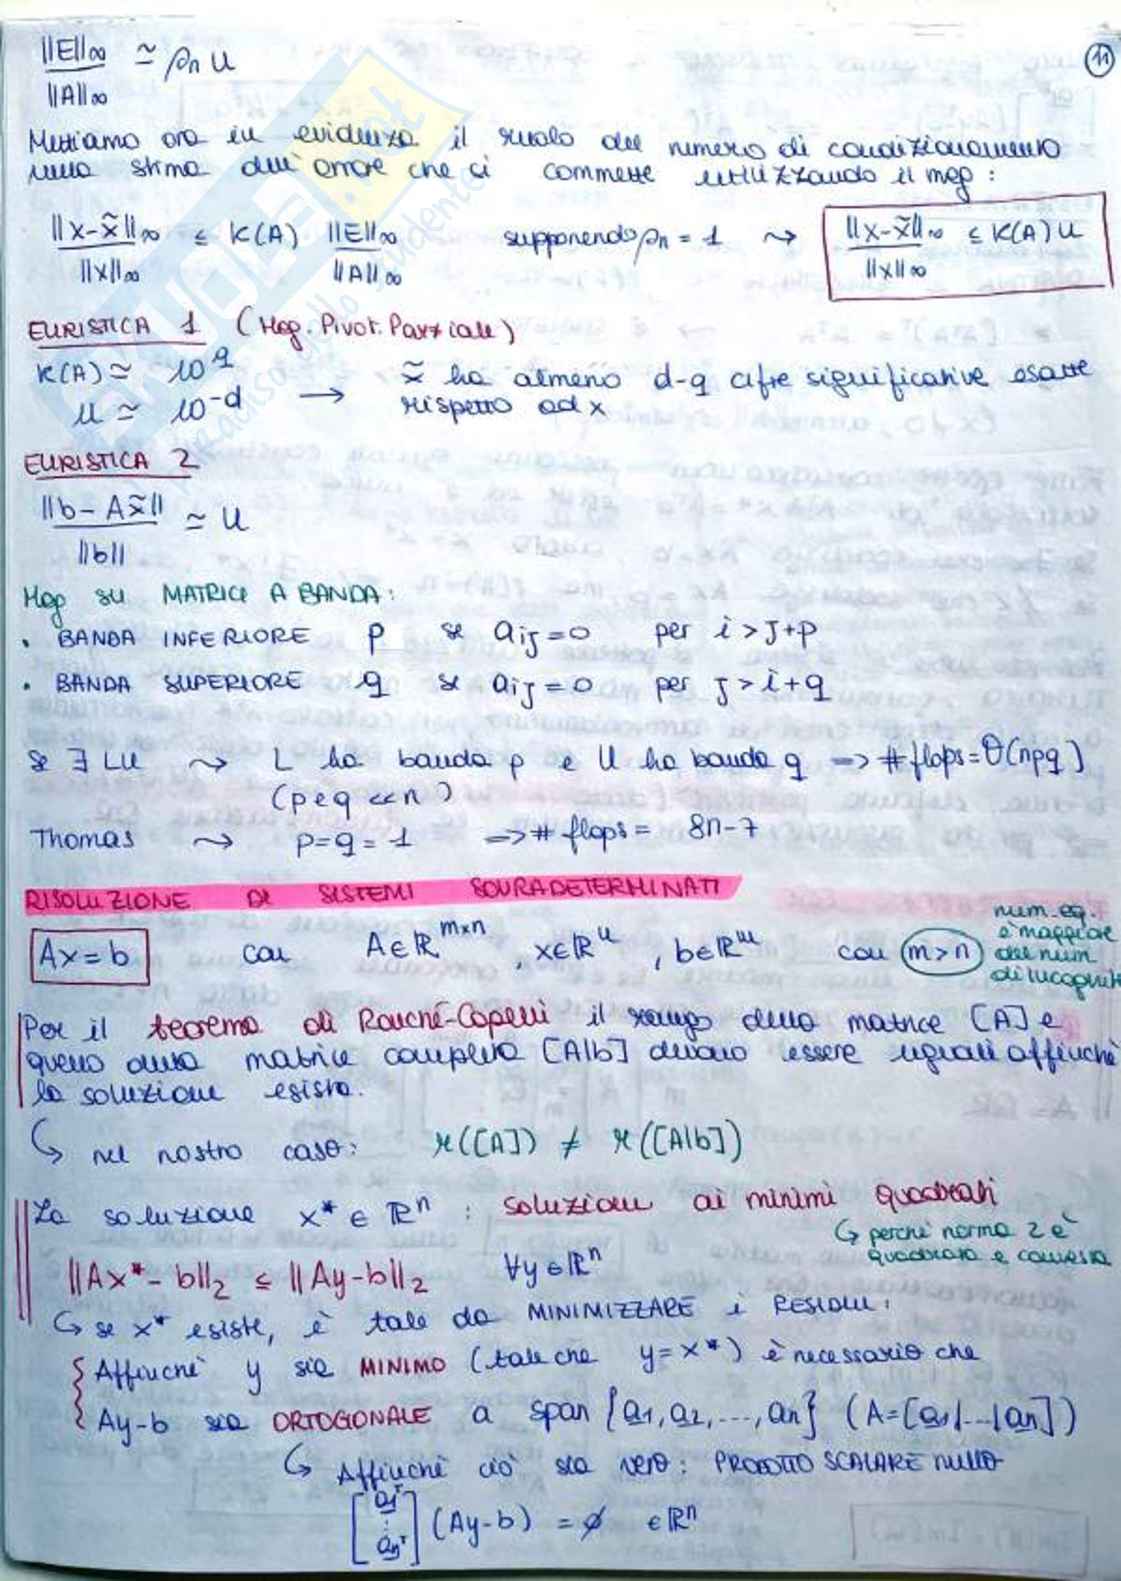 11
||E||∞ / ||A||∞ ≃ ρn u
Mettiamo ora in evidenza il ruolo del numero di condizionamento
nella stima dell'errore che si commette utilizzando il meg:
||x-x̃||∞ / ||x||∞ ≤ K(A) ||E||∞ / ||A||∞ supponendo ρn = 1 ⇝ ||x-x̃||∞ / ||x||∞ ≤ K(A) u
EURISTICA 1 (Meg. Pivot. Parziale)
K(A) ≃ 10^q
u ≃ 10^-d → x̃ ha almeno d-q cifre significative esatte
rispetto ad x
EURISTICA 2
||b - Ax̃|| / ||b|| ≃ u
Meg su MATRICI A BANDA:
• BANDA INFERIORE p se aij = 0 per i > j+p
• BANDA SUPERIORE q se aij = 0 per j > i+q
se ∃ LU ⇝ L ha banda p e U ha banda q => # flops = O(npq)
(p e q << n)
Thomas ⇝ p = q = 1 => # flops = 8n-7
RISOLUZIONE DI SISTEMI SOVRADETERMINATI
Ax = b con A∈ℝ^m×n, x∈ℝ^n, b∈ℝ^m con m>n
num. eq.
è maggiore
del num
di incognite
Per il teorema di Rouché-Capelli il rango della matrice [A] e
quello della matrice completa [A|b] devono essere uguali affinché
la soluzione esista.
↳ nel nostro caso: r([A]) ≠ r([A|b])
La soluzione x* ∈ ℝ^n : soluzione ai minimi quadrati
↳ perché norma 2 è
quadrata e convessa
||Ax* - b||2 ≤ ||Ay-b||2 ∀y∈ℝ^n
↳ se x* esiste, è tale da MINIMIZZARE i RESIDUI:
Affinché y sia MINIMO (tale che y = x*) è necessario che
Ay-b sia ORTOGONALE a span {a1, a2, ..., an} (A=[a1|...|an])
↳ Affinché ciò sia vero: PRODOTTO SCALARE NULLO
[a1^T
:
an^T] (Ay-b) = ∅ ∈ℝ^n